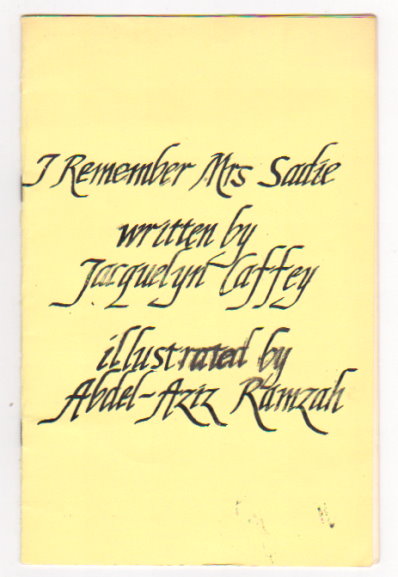 I Remember Mrs Sadie
written by
Jacquelyn Caffey
illustrated by
Abdel-Aziz Ramzah